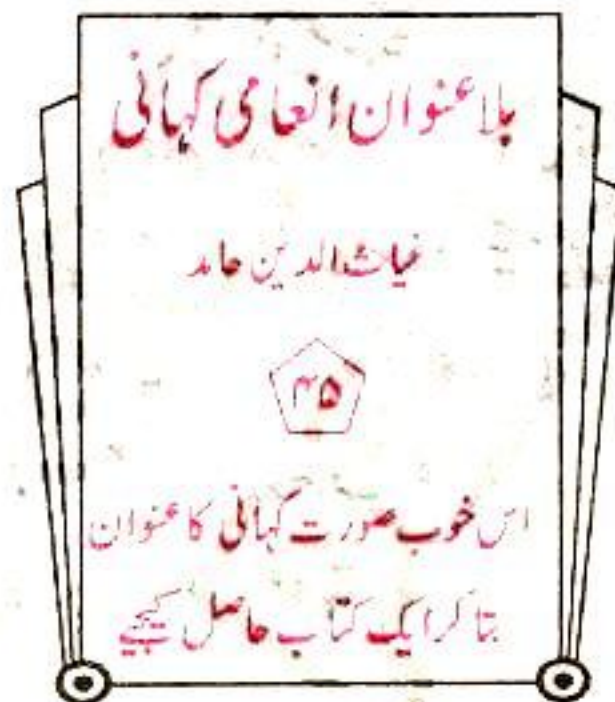 بلا عنوان انعامی کہانی
غیاث الدین حامد
۴۵
اس خوب صورت کہانی کا عنوان
بتا کر ایک کتاب حاصل کیجیے